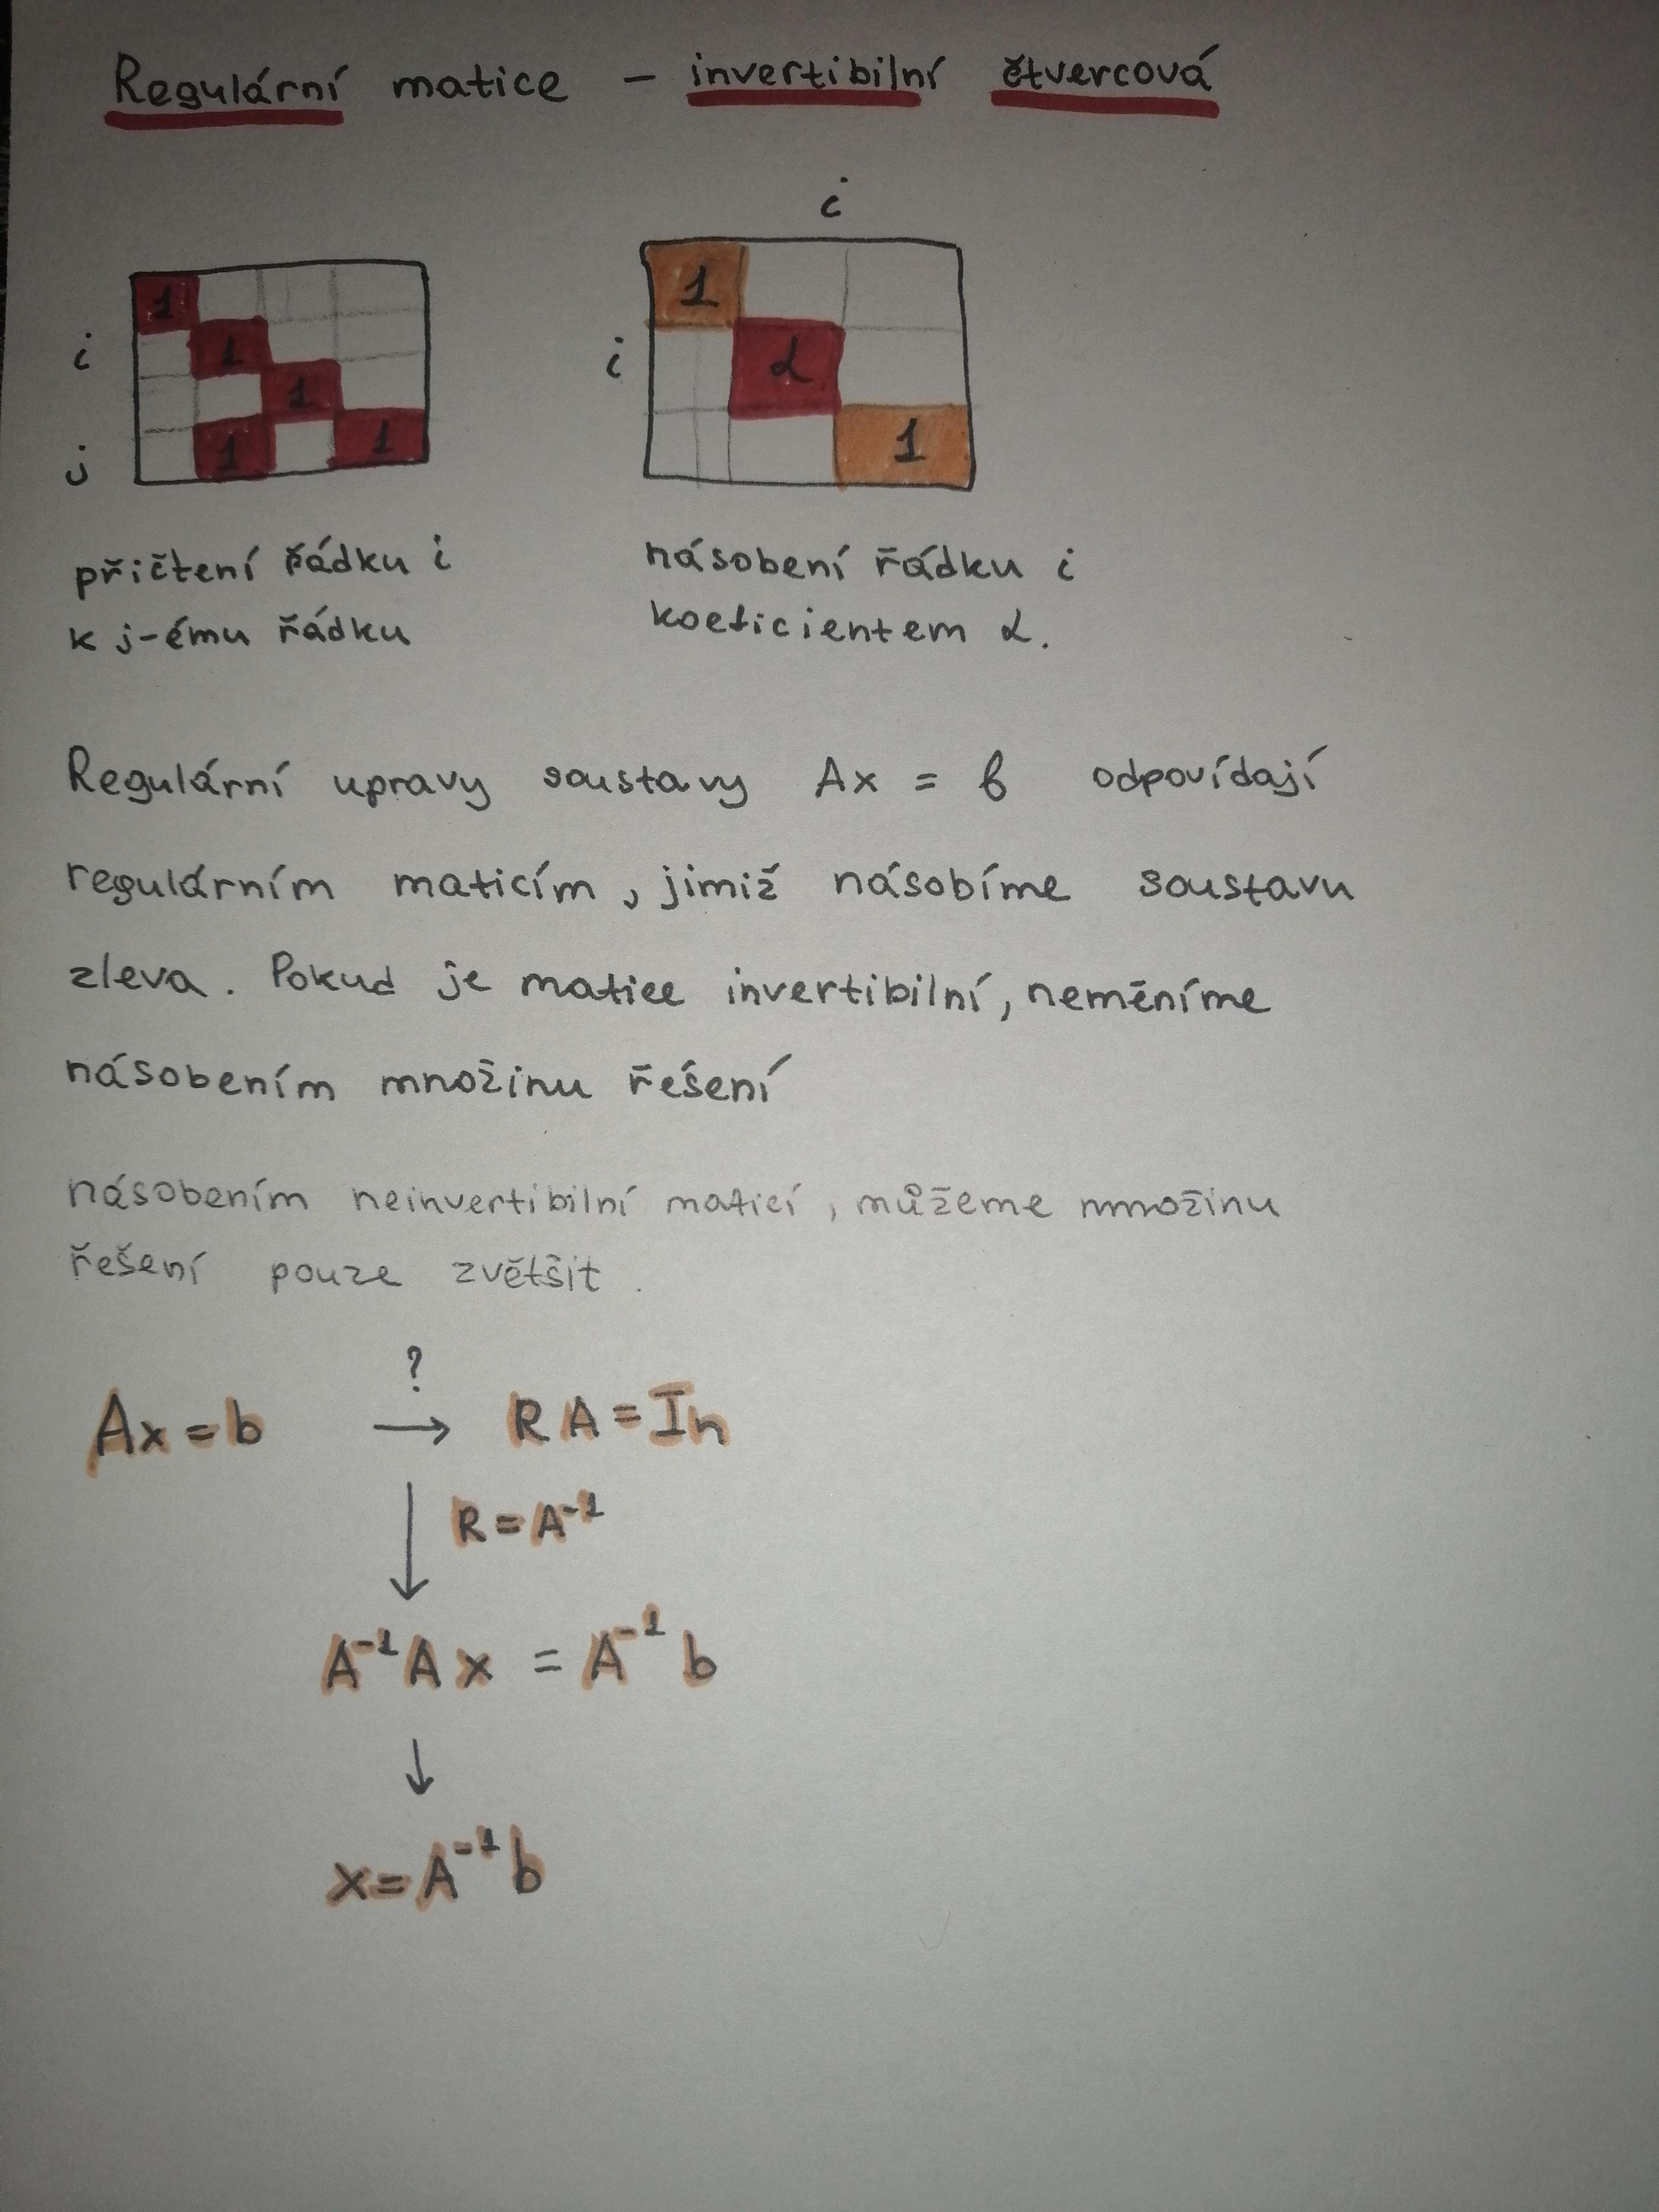 Regulární matice – invertibilní čtvercová
i
1
1
i
1
i
α
1
j
1
1
1
přičtení řádku i
k j-ému řádku
násobení řádku i
koeficientem α.
Regulární upravy soustavy Ax = b odpovídají
regulárním maticím, jimiž násobíme soustavu
zleva. Pokud je matice invertibilní, neměníme
násobením množinu řešení
násobením neinvertibilní maticí, můžeme množinu
řešení pouze zvětšit.
?
Ax = b → RA = In
↓ R = A⁻¹
A⁻¹Ax = A⁻¹b
↓
x = A⁻¹b